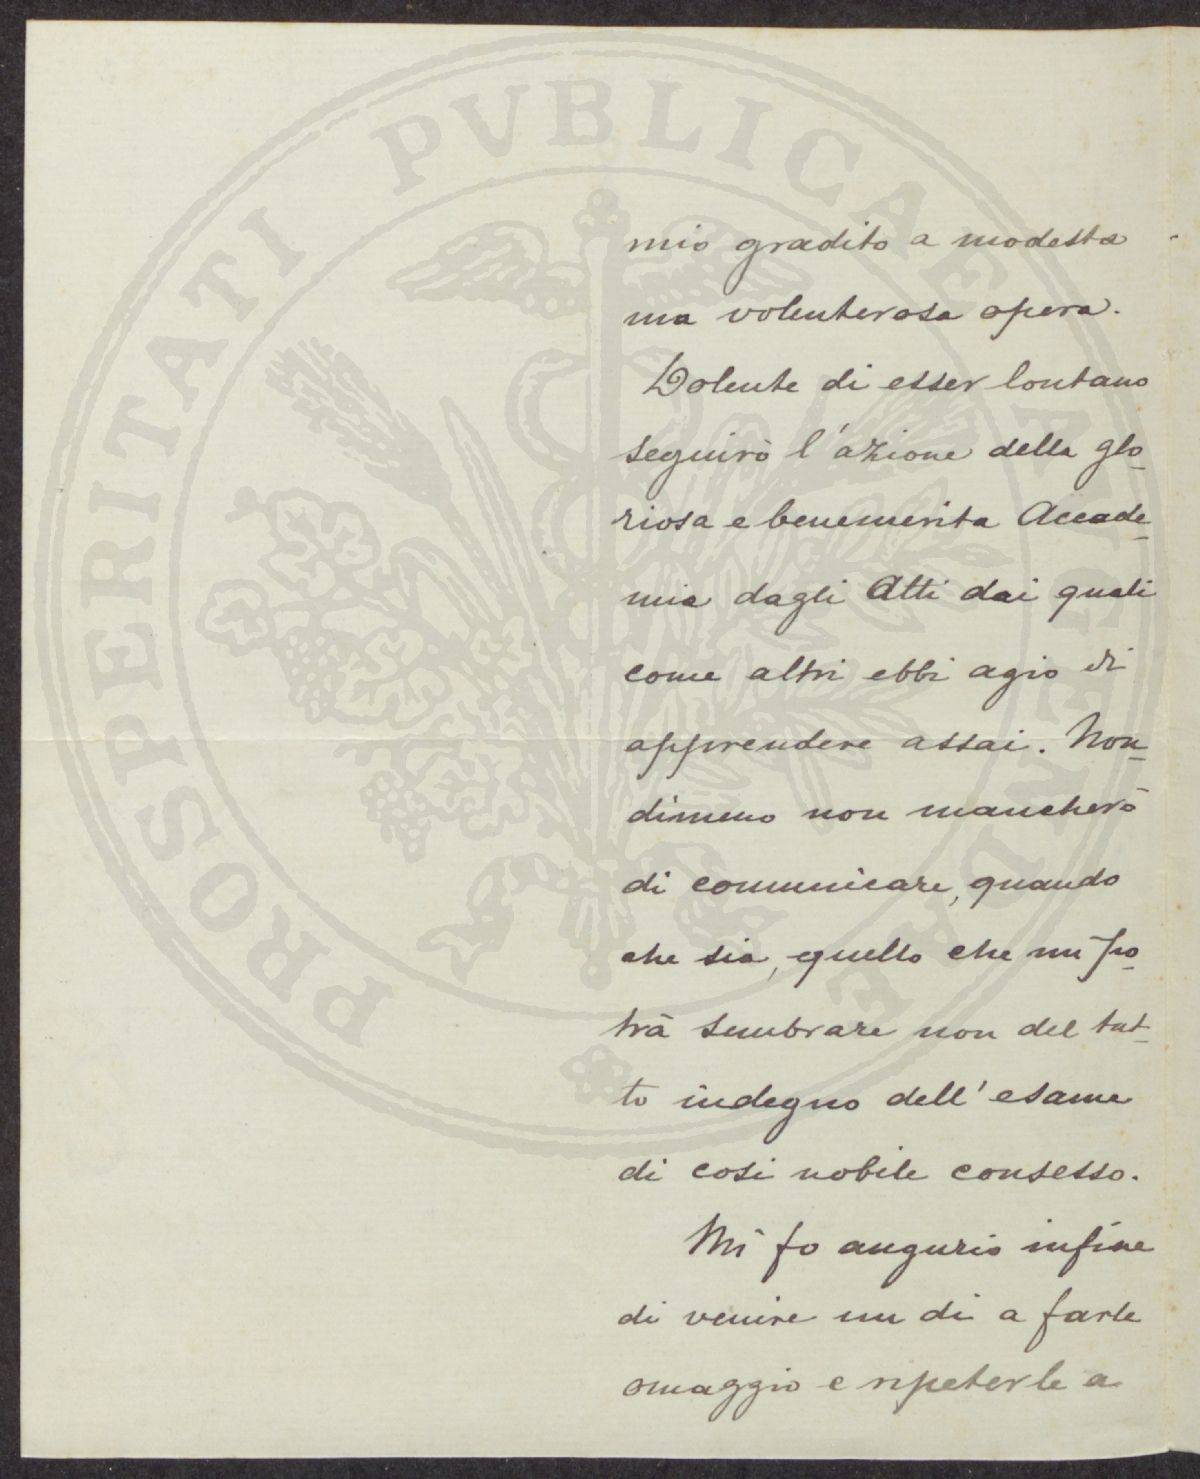 PROSPERITATI PVBLICAE AVGENDAE
mio gradito a modesta
ma volenterosa opera.
Dolente di esser lontano
seguirò l'azione della glo-
riosa e benemerita Accade-
mia dagli Atti dai quali
come altri ebbi agio di
apprendere assai. Non-
dimeno non mancherò
di comunicare, quando
che sia, quello che mi po-
trà sembrare non del tut-
to indegno dell'esame
di cosi nobile consesso.
Mi fo augurio infine
di venire un di a farle
omaggio e ripeterle a